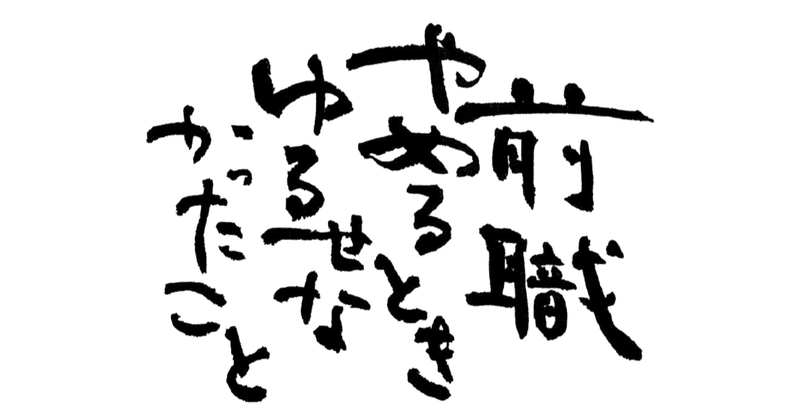 前職
やめるとき
ゆるせな
かったこと